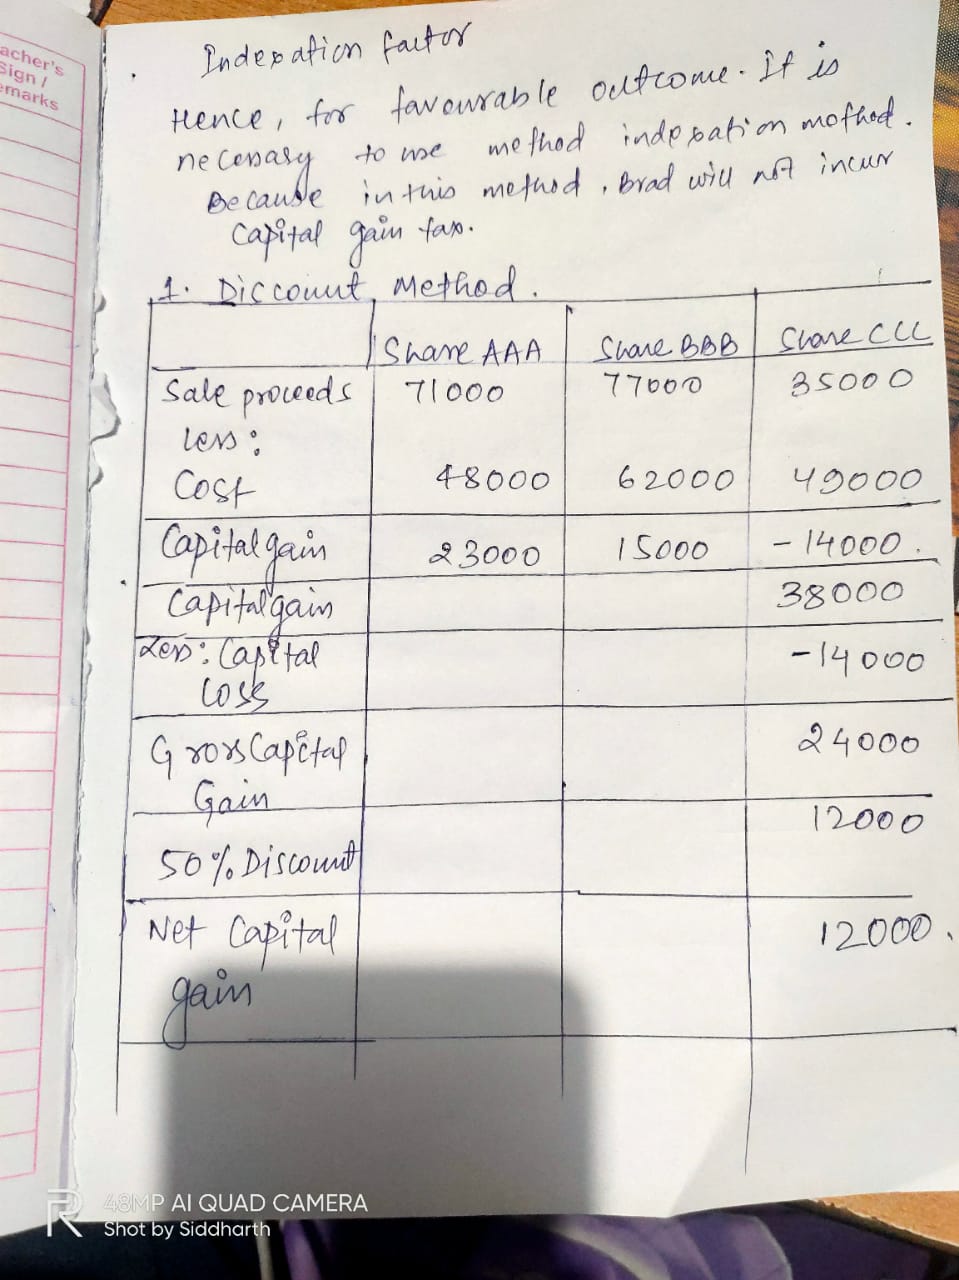 acher's
Sign /
emarks
Indexation factor
Hence, for favourable outcome. It is
necessary to use method indexation mothod.
Because in this method, Brad will not incur
Capital gain tax.
1. Discount Method.
Share AAA Share BBB Share CCC
Sale proceeds 71000 77000 35000
Less:
Cost 48000 62000 49000
Capital gain 23000 15000 -14000.
Capital gain 38000
Less: Capital -14000
Loss
Gross Capital 24000
Gain
12000
50% Discount
Net Capital 12000.
gain
48MP AI QUAD CAMERA
Shot by Siddharth